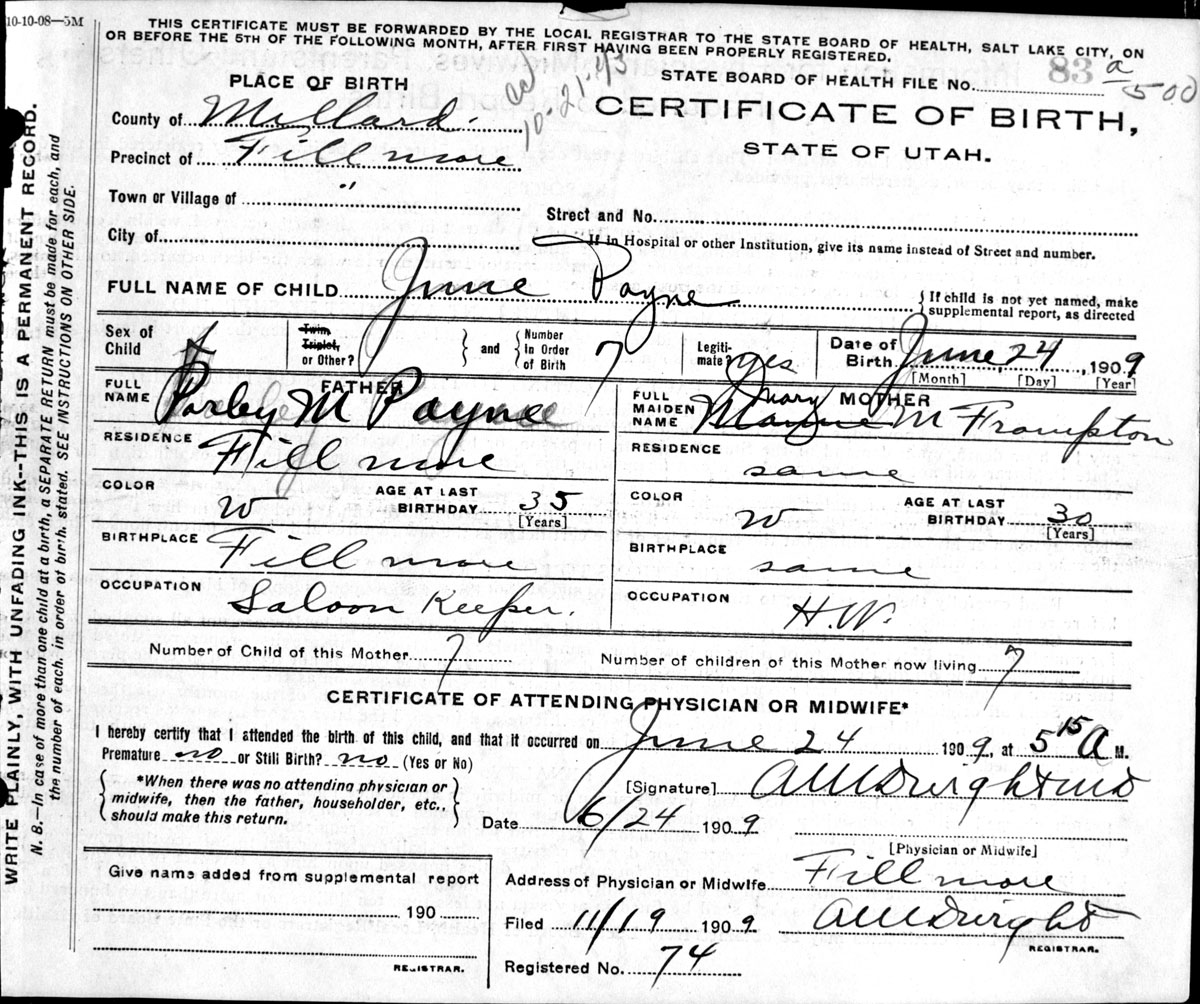 10-10-08—5M
THIS CERTIFICATE MUST BE FORWARDED BY THE LOCAL REGISTRAR TO THE STATE BOARD OF HEALTH, SALT LAKE CITY, ON
OR BEFORE THE 5TH OF THE FOLLOWING MONTH, AFTER FIRST HAVING BEEN PROPERLY REGISTERED.
WRITE PLAINLY, WITH UNFADING INK--THIS IS A PERMANENT RECORD.
N. B.—In case of more than one child at a birth, a SEPARATE RETURN must be made for each, and
the number of each, in order of birth, stated. SEE INSTRUCTIONS ON OTHER SIDE.
PLACE OF BIRTH
10-21-43
STATE BOARD OF HEALTH FILE No. 83 a/500
CERTIFICATE OF BIRTH,
STATE OF UTAH.
County of Millard.
Precinct of Fillmore
Town or Village of "
Street and No.
City of
If in Hospital or other Institution, give its name instead of Street and number.
FULL NAME OF CHILD June Payne
If child is not yet named, make
supplemental report, as directed
Sex of Child f
Twin, Triplet, or Other? and Number In Order of Birth 7
Legitimate? yes
Date of Birth June 24, 1909
[Month] [Day] [Year]
FATHER
FULL NAME Parley M Payne
RESIDENCE Fillmore
COLOR W AGE AT LAST BIRTHDAY 35
[Years]
BIRTHPLACE Fillmore
OCCUPATION Saloon Keeper.
MOTHER
FULL MAIDEN NAME Mary M Frampton
RESIDENCE same
COLOR W AGE AT LAST BIRTHDAY 30
[Years]
BIRTHPLACE same
OCCUPATION H.W.
Number of Child of this Mother 7 Number of children of this Mother now living 7
CERTIFICATE OF ATTENDING PHYSICIAN OR MIDWIFE*
I hereby certify that I attended the birth of this child, and that it occurred on June 24 1909, at 5 15 A M.
Premature no or Still Birth? no (Yes or No)
*When there was no attending physician or
midwife, then the father, householder, etc.,
should make this return.
[Signature] Dwight MD
Date 6/24 1909
[Physician or Midwife]
Give name added from supplemental report
190
REGISTRAR.
Address of Physician or Midwife Fillmore
Filed 11/19 1909 Dwight
REGISTRAR.
Registered No. 74